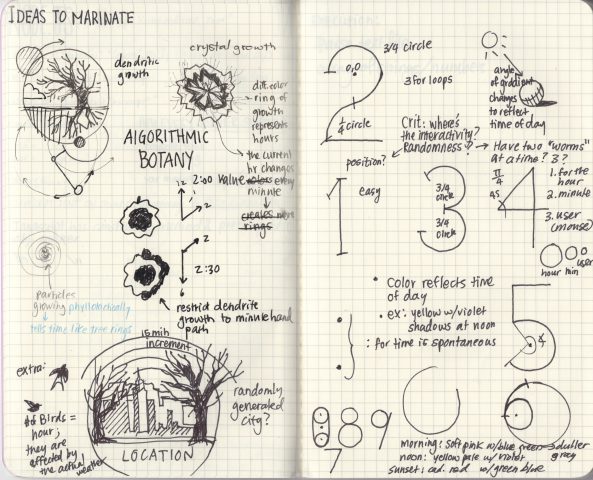 IDEAS TO MARINATE
dendritic
growth
crystal growth
diff. color
ring of
growth
represents
hours
the current
hr changes
value colors every
minute
creates new
rings
ALGORITHMIC
BOTANY
12
2:00
2
2
2:30
restrict dendrite
growth to minute hand
path
particles
growing phyllotactically
tells time like tree rings
15 min
increment
extra:
# of Birds =
hour;
they are
affected by
the actual
weather
randomly
generated
city?
LOCATION
3/4 circle
3 for loops
1/4 circle
angle
of gradient
changes
to reflect
time of day
Crit: where's
the interactivity?
Randomness?
position?
Have two "worms"
at a time? 3?
1. for the
hour
2. minute
3. user
(mouse)
hour min user
1
easy
3/4
circle
3/4
circle
π/4
45
• Color reflects time
of day
• ex: yellow w/ violet
shadows at noon
: for time is spontaneous
8 8 9
7
morning: soft pink w/ blue green → duller
gray
noon: yellow pale w/ violet
sunset: cad. red w/ green blue